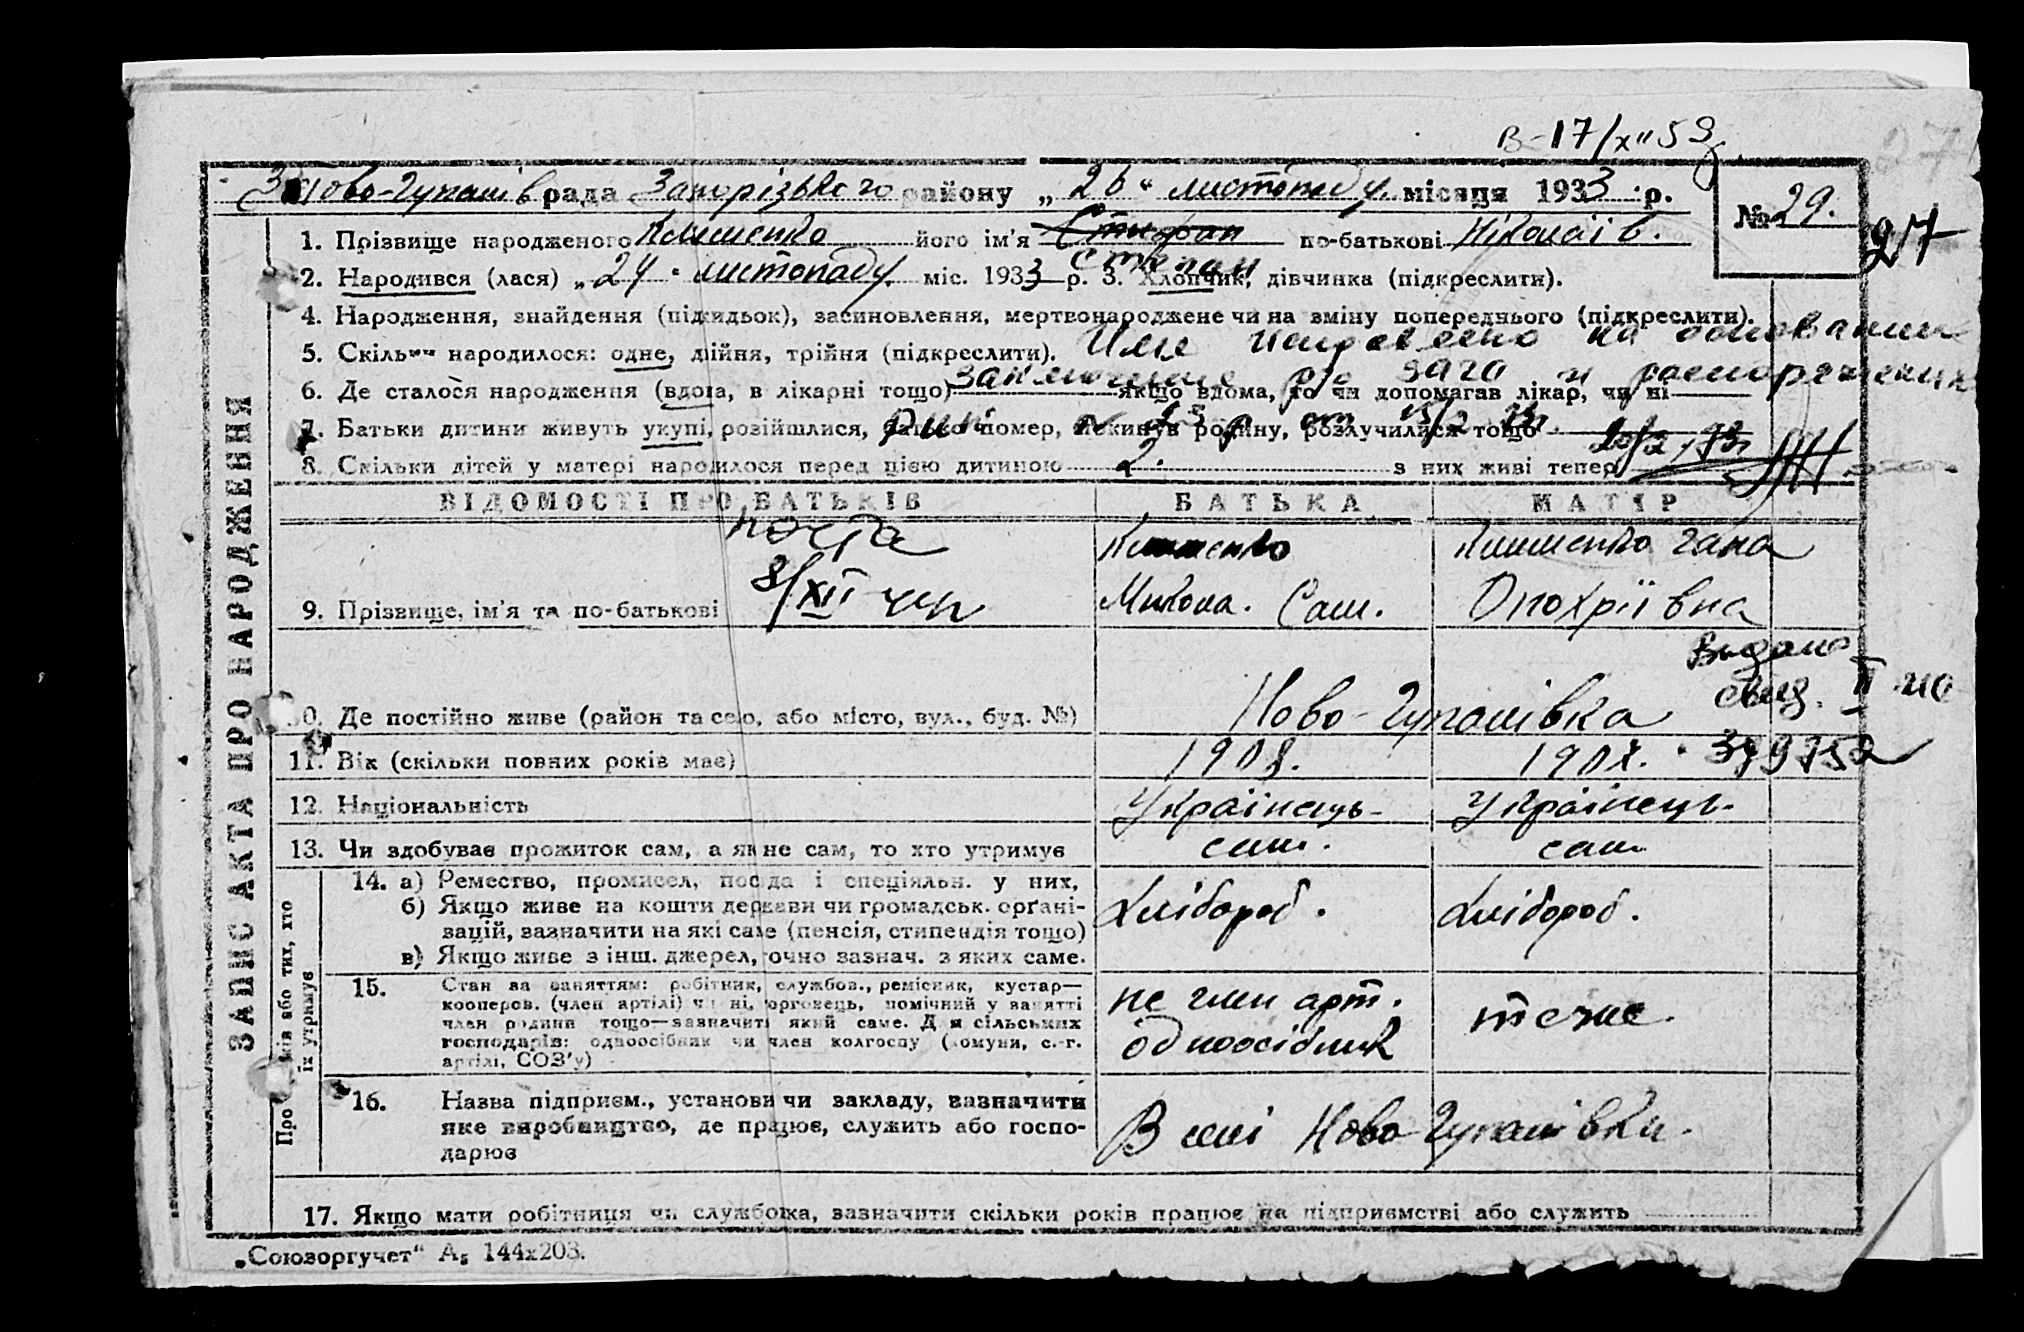 В-17/XII 59
Ново-Гупалів рада Запорізького району „26“ листопаду місяця 1933 р.
№ 29.
27
1. Прізвище народженого Клименко його ім'я Стифан по-батькові Ніколаїв.
Степан
2. Народився (лася) „24“ листопаду міс. 1933 р. 3. Хлопчик, дівчинка (підкреслити).
4. Народження, знайдення (підкидьок), засиновлення, мертвонароджене чи на зміну попереднього (підкреслити).
5. Скільки народилося: одне, двійня, трійня (підкреслити). Имя исправлено на основании
6. Де сталося народження (вдома, в лікарні тощо) якщо вдома, то чи допомагав лікар, чи ні
заключение загс и распоряжения
7. Батьки дитини живуть укупі, розійшлися, батько помер, покинув родину, розлучилися тощо
8. Скільки дітей у матері народилося перед цією дитиною 2. з них живі тепер
ВІДОМОСТІ ПРО БАТЬКІВ БАТЬКА МАТІР
почта
8/XII
Клименко Клименко Гана
9. Прізвище, ім'я та по-батькові Микола. Сам. Онохріївна
Видано
свид. II
10. Де постійно живе (район та село, або місто, вул., буд. №) Ново-Гупалівка
11. Вік (скільки повних років має) 1908. 1908.
12. Національність Українець Українець
13. Чи здобуває прожиток сам, а як не сам, то хто утримує сам. сам
ЗАПИС АКТА ПРО НАРОДЖЕННЯ
Про батьків або тих, хто їх утримує
14. а) Ремество, промисел, посада і спеціяльн. у них,
б) Якщо живе на кошти держави чи громадськ. орґані-
зацій, зазначити на які саме (пенсія, стипендія тощо)
в) Якщо живе з інш. джерел, точно зазнач. з яких саме.
Хлібороб. Хлібороб.
15. Стан за заняттям: робітник, службов., ремісник, кустар—
кооперов. (член артілі) чи ні, торговець, помічний у занятті
член родини тощо—зазначити який саме. Для сільських
господарів: одноосібник чи член колгоспу (комуни, с.-г.
артілі, СОЗ'у)
не член арт. теже
одноосібник
16. Назва підприєм., установи чи закладу, зазначити
яке виробництво, де працює, служить або госпо-
дарює
В селі Ново-Гупалівки.
17. Якщо мати робітниця чи службовка, зазначити скільки років працює на підприємстві або служить
„Союзоргучет“ А₅ 144х203.